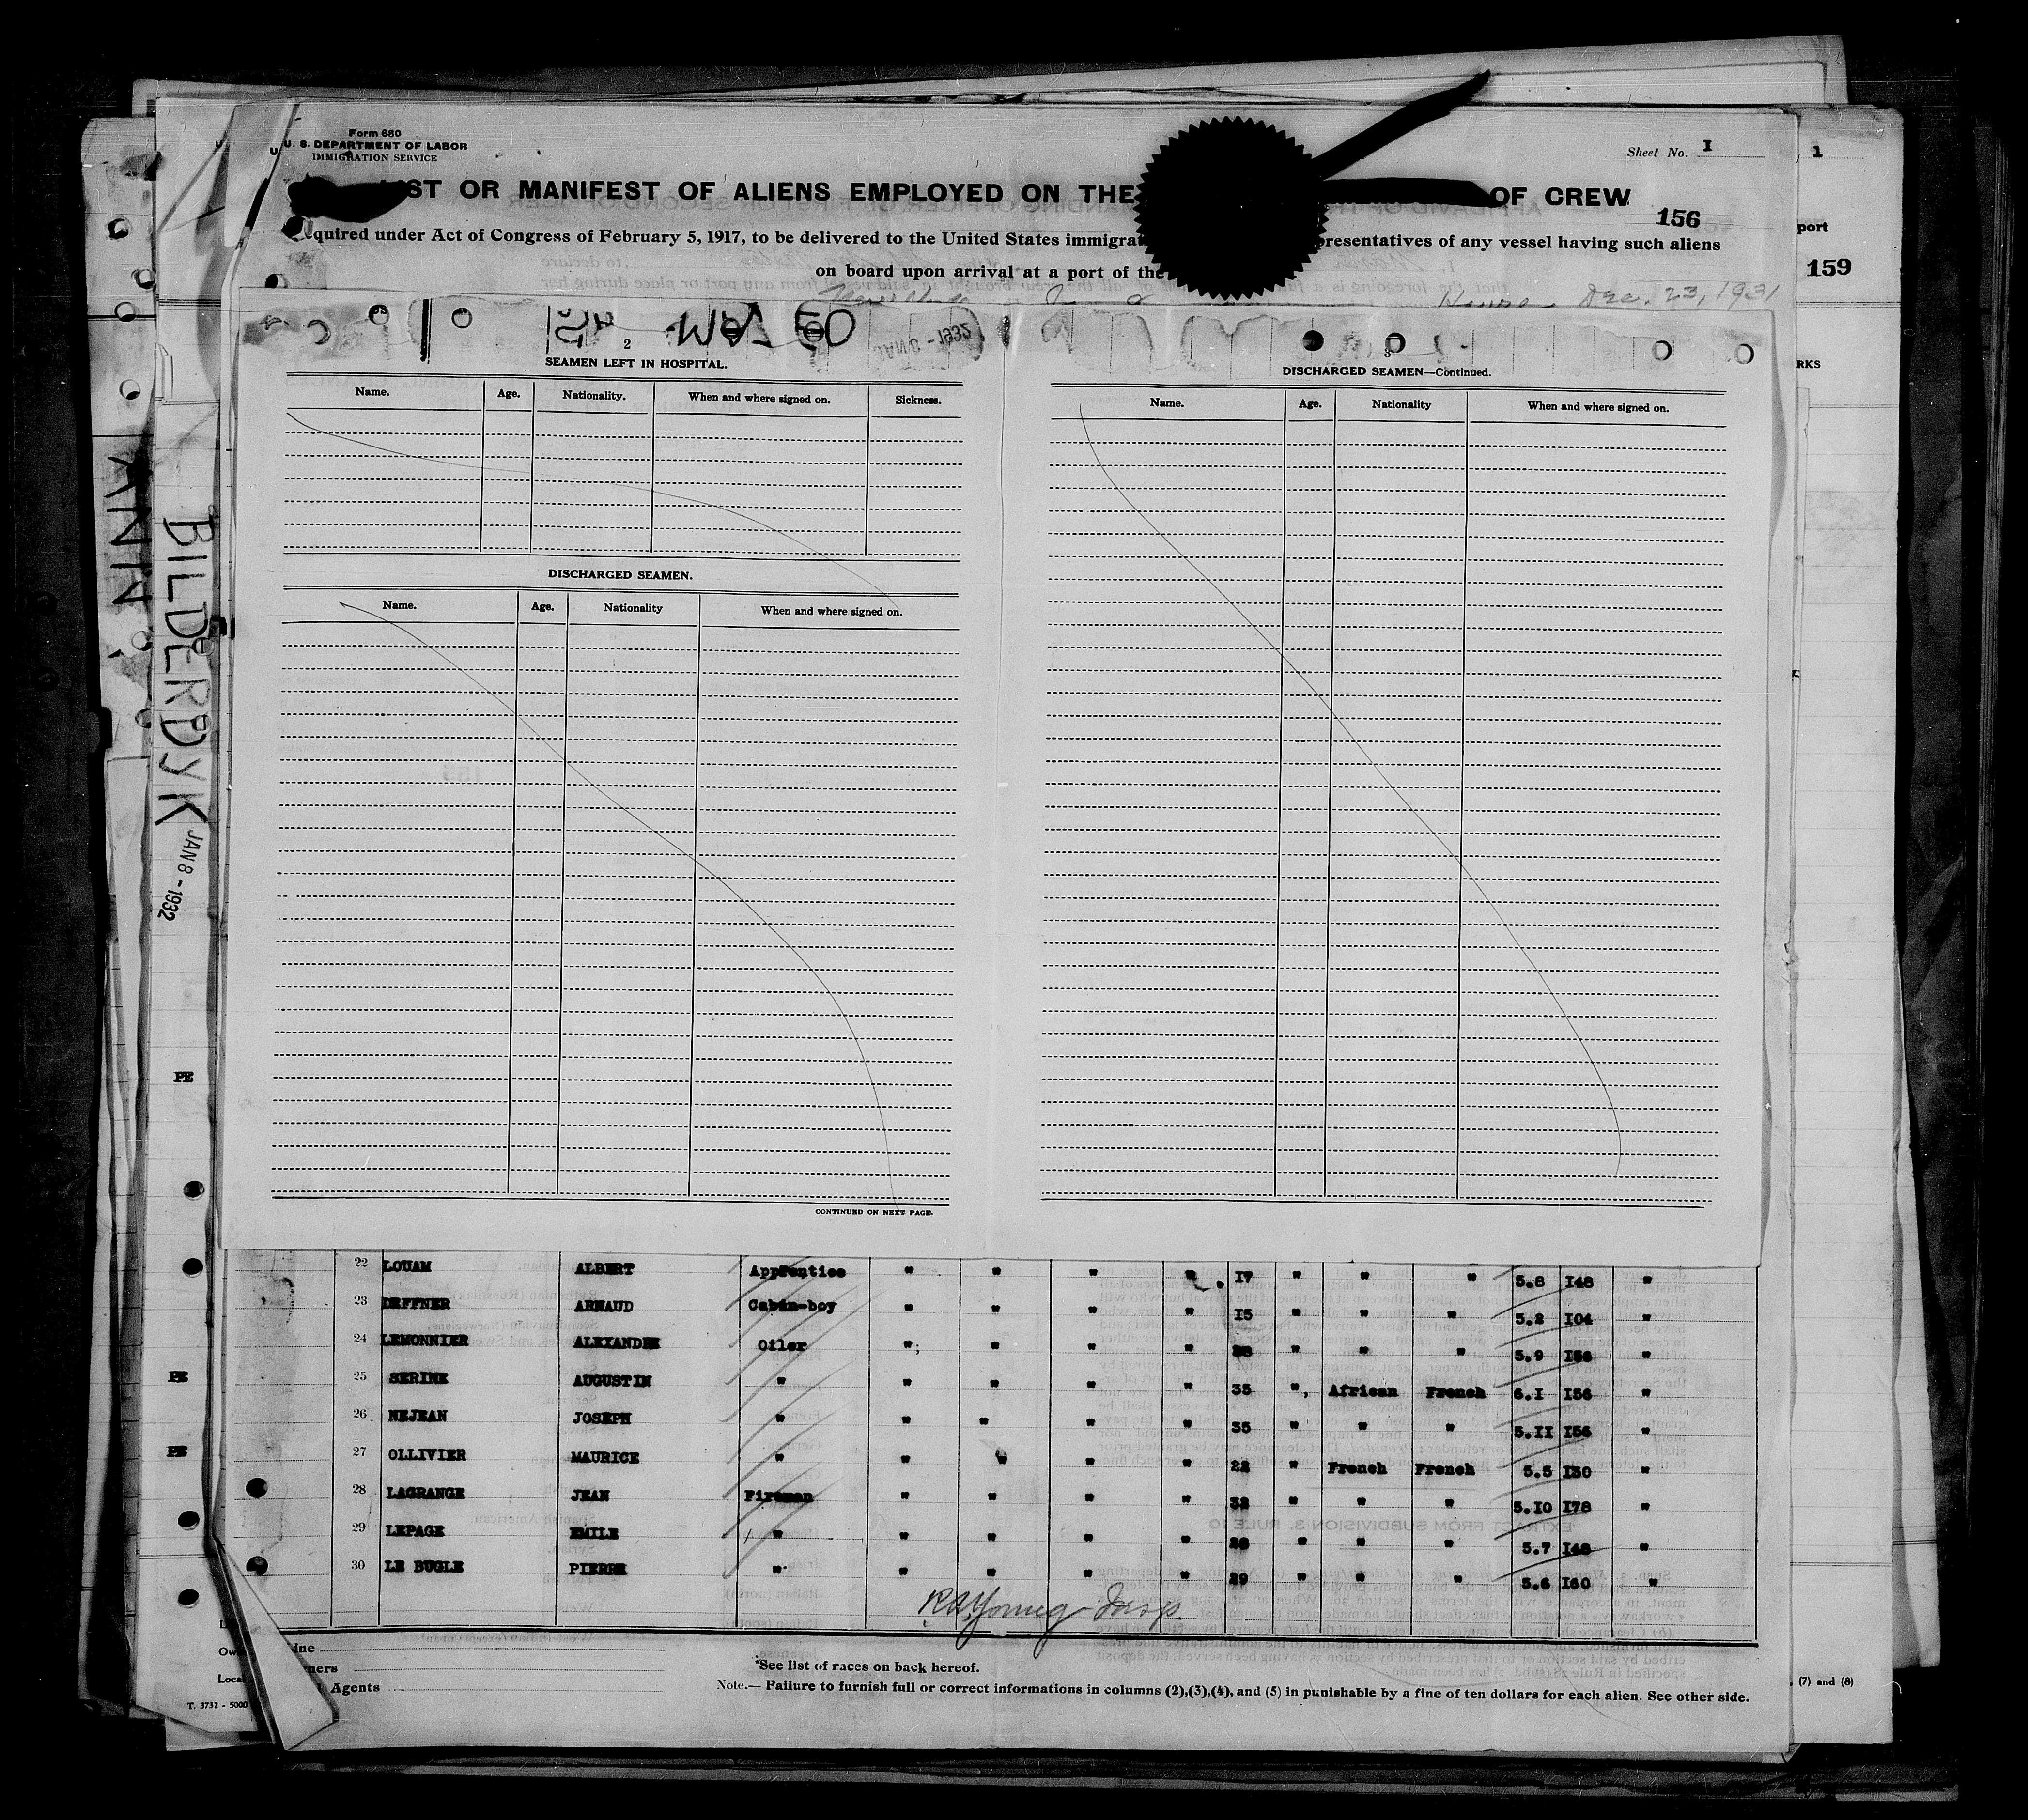 Form 680
U. S. DEPARTMENT OF LABOR
IMMIGRATION SERVICE
Sheet No. I
1
ST OR MANIFEST OF ALIENS EMPLOYED ON THE OF CREW
156
port
quired under Act of Congress of February 5, 1917, to be delivered to the United States immigrat presentatives of any vessel having such aliens
159
on board upon arrival at a port of the
Dec. 23, 1931
2
3
SEAMEN LEFT IN HOSPITAL.
DISCHARGED SEAMEN—Continued.
RKS
Name. Age. Nationality. When and where signed on. Sickness.
Name. Age. Nationality When and where signed on.
DISCHARGED SEAMEN.
Name. Age. Nationality When and where signed on.
ANN
BILDERDYK
JAN 8 - 1932
PE
CONTINUED ON NEXT PAGE.
22 LOUAM ALBERT Apprentice " " " " 17 " " " 5.8 I48 "
23 DEFFNER ARNAUD Cabin-boy " " " " I5 " " " 5.2 I04 "
24 LEMONNIER ALEXANDRE Oiler " " " " " " " 5.9 I56 "
PE
25 SERINE AUGUSTIN " " " " " 35 " African French 6.I I56 "
26 NEJEAN JOSEPH " " " " " 35 " " " 5.II I56 "
PE
27 OLLIVIER MAURICE " " " " " 22 " French French 5.5 I30 "
28 LAGRANGE JEAN Fireman " " " " 32 " " " 5.IO I78 "
29 LEPAGE EMILE " " " " " 28 " " " 5.7 I48 "
30 LE BUGLE PIERRE " " " " " 29 " " " 5.6 I60 "
R A Young Insp.
ine
Ow
ners
Local
Agents
*See list of races on back hereof.
Note.— Failure to furnish full or correct informations in columns (2),(3),(4), and (5) in punishable by a fine of ten dollars for each alien. See other side.
(7) and (8)
T. 3732 - 5000